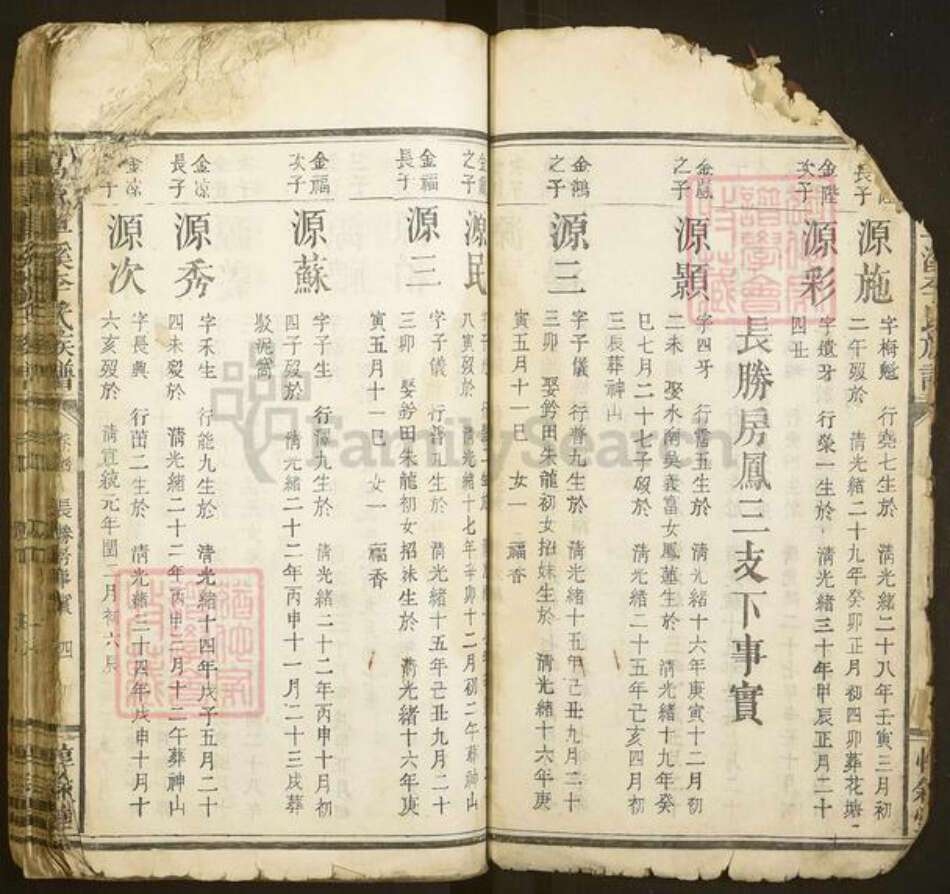 長子
源施
字梅魁 行堯七生於 清光緒二十八年壬寅三月初
二午歿於 清光緒二十九年癸卯正月初四卯葬花塘
金陞
次子
源彩
字遺牙 行榮一生於 清光緒三十年甲辰正月二十
四丑
長勝房鳳三支下事實
金嚴
之子
源顥
字四牙 行 五生於 清光緒十六年庚寅十二月初
二未 娶水南吳義富女鳳蓮生於 清光緒十九年癸
巳七月二十七子歿於 清光緒二十五年己亥四月初
三辰葬神山
金鴻
之子
源三
字子儀 行普九生於 清光緒十五年己丑九月二十
三卯 娶鈴田朱龍初女招妹生於 清光緒十六年庚
寅五月十一巳 女一 福香
之子
源民
八寅歿於 清光緒十七年辛卯十二月初二午葬神山
金福
長子
源三
字子儀 行普九生於 清光緒十五年己丑九月二十
三卯 娶鈴田朱龍初女招妹生於 清光緒十六年庚
寅五月十一巳 女一 福香
金福
次子
源蘇
字子生 行 九生於 清光緒二十二年丙申十月初
四子歿於 清光緒二十二年丙申十一月二十三戌葬
泥窩
金凉
長子
源秀
字禾生 行能九生於 清光緒十四年戊子五月二十
四未歿於 清光緒二十二年丙申三月十二午葬神山
金凉
次子
源次
字長興 行 二生於 清光緒三十四年戊申十月十
六亥歿於 清宣統元年閏二月初六辰
李氏族譜
長勝房事實 四
敦敘堂
FamilySearch